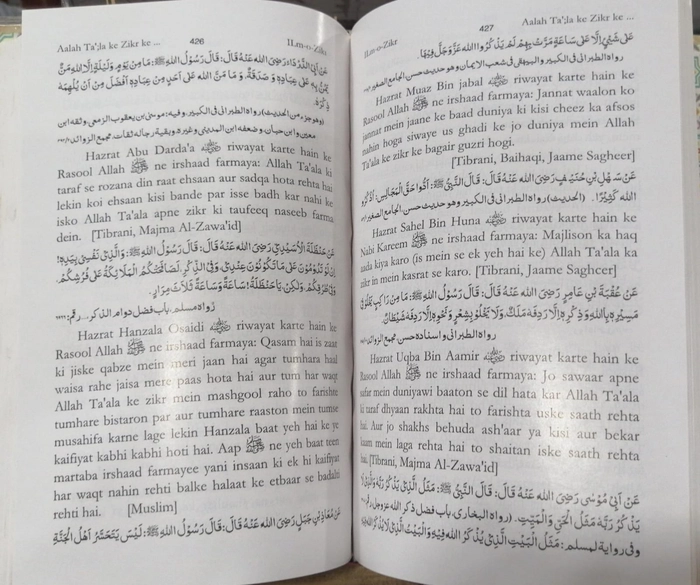 Aalah Ta';la ke Zikr ke ... 426 ILm-o-Zikr
عَنْ اَبِي الدَّرْدَاءَ رَضِيَ اللهُ عَنْهُ قَالَ: قَالَ رَسُوْلُ اللهِ ﷺ: مَا مِنْ يَوْمٍ، وَلَيْلَةٍ اِلَّا لِلّٰهِ مَنٌّ
يَمُنُّ بِهٖ عَلٰى عِبَادِهٖ وَ صَدَقَةٌ، وَ مَا مَنَّ اللهُ عَلٰى اَحَدٍ مِنْ عِبَادِهٖ اَفْضَلَ مِنْ اَنْ يُلْهِمَهٗ
ذِكْرَهٗ.
(وهو جزء من الحديث) رواه الطبرانى فى الكبير، وفيه: موسىٰ بن يعقوب الزمعى، وثقه ابن
معين وابن حبان، وضعفه ابن المدينى وغيره، وبقية رجاله ثقات، مجمع الزوائد
Hazrat Abu Darda'a riwayat karte hain ke
Rasool Allah ﷺ ne irshaad farmaya: Allah Ta'ala ki
taraf se rozana din raat ehsaan aur sadqa hota rehta hai
lekin koi ehsaan kisi bande par isse badh kar nahi ke
isko Allah Ta'ala apne zikr ki taufeeq naseeb farma
dein. [Tibrani, Majma Al-Zawa'id]
عَنْ حَنْظَلَةَ الْاُسَيْدِيِّ رَضِيَ اللهُ عَنْهُ قَالَ: قَالَ رَسُوْلُ اللهِ ﷺ: وَالَّذِيْ نَفْسِيْ بِيَدِهٖ!
اِنْ لَوْ تَدُوْمُوْنَ عَلٰى مَا تَكُوْنُوْنَ عِنْدِيْ، وَفِي الذِّكْرِ، لَصَافَحَتْكُمُ الْمَلَائِكَةُ عَلٰى فُرُشِكُمْ،
وَفِيْ طُرُقِكُمْ، وَلٰكِنْ، يَا حَنْظَلَةُ! سَاعَةً وَسَاعَةً ثَلَاثَ مِرَارٍ.
رواه مسلم، باب فضل دوام الذكر، رقم:
Hazrat Hanzala Osaidi riwayat karte hain ke
Rasool Allah ﷺ ne irshaad farmaya: Qasam hai is zaat
ki jiske qabze mein meri jaan hai agar tumhara haal
waisa rahe jaisa mere paas hota hai aur tum har waqt
Allah Ta'ala ke zikr mein mashgool raho to farishte
tumhare bistaron par aur tumhare raaston mein tumse
musahifa karne lage lekin Hanzala baat yeh hai ke ye
kaifiyat kabhi kabhi hoti hai. Aap ﷺ ne yeh baat teen
martaba irshaad farmayee yani insaan ki ek hi kaifiyat
har waqt nahin rehti balke halaat ke etbaar se badalti
rehti hai. [Muslim]
عَنْ مُعَاذِ بْنِ جَبَلٍ رَضِيَ اللهُ عَنْهُ قَالَ: قَالَ رَسُوْلُ اللهِ ﷺ: لَيْسَ يَتَحَسَّرُ اَهْلُ الْجَنَّةِ
ILm-o-Zikr 427 Aalah Ta';la ke Zikr ke ...
عَلٰى شَيْءٍ اِلَّا عَلٰى سَاعَةٍ مَرَّتْ بِهِمْ لَمْ يَذْكُرُوا اللهَ عَزَّوَجَلَّ فِيْهَا.
رواه الطبرانى فى الكبير والبيهقى فى شعب الايمان وهو حديث حسن، الجامع الصغير
Hazrat Muaz Bin jabal riwayat karte hain ke
Rasool Allah ﷺ ne irshaad farmaya: Jannat waalon ko
jannat mein jaane ke baad duniya ki kisi cheez ka afsos
nahin hoga siwaye us ghadi ke jo duniya mein Allah
Ta'ala ke zikr ke bagair guzri hogi.
[Tibrani, Baihaqi, Jaame Sagheer]
عَنْ سَهْلِ بْنِ حُنَيْفٍ رَضِيَ اللهُ عَنْهُ قَالَ: قَالَ النَّبِيُّ ﷺ: اَدُّوْا حَقَّ الْمَجَالِسِ: اُذْكُرُوا
اللهَ كَثِيْرًا. (الحديث) رواه الطبرانى فى الكبير وهو حديث حسن، الجامع الصغير
Hazrat Sahel Bin Huna riwayat karte hain ke
Nabi Kareem ﷺ ne irshaad farmaya: Majlison ka haq
aada kiya karo (is mein se ek yeh hai ke) Allah Ta'ala ka
zikr in mein kasrat se karo. [Tibrani, Jaame Sagheer]
عَنْ عُقْبَةَ بْنِ عَامِرٍ رَضِيَ اللهُ عَنْهُ قَالَ: قَالَ رَسُوْلُ اللهِ ﷺ: مَا مِنْ رَاكِبٍ يَخْلُوْ فِيْ
مَسِيْرِهٖ بِاللهِ وَذِكْرِهٖ اِلَّا رَدِفَهٗ مَلَكٌ، وَلَا يَخْلُوْ بِشِعْرٍ وَنَحْوِهٖ اِلَّا رَدِفَهٗ شَيْطَانٌ.
رواه الطبرانى واسناده حسن، مجمع الزوائد
Hazrat Uqba Bin Aamir riwayat karte hain ke
Rasool Allah ﷺ ne irshaad farmaya: Jo sawaar apne
safar mein duniyawi baaton se dil hata kar Allah Ta'ala
ki taraf dhyaan rakhta hai to farishta uske saath rehta
hai. Aur jo shakhs behuda ash'aar ya kisi aur bekar
kaam mein laga rehta hai to shaitan iske saath rehta
hai. [Tibrani, Majma Al-Zawa'id]
عَنْ اَبِيْ مُوْسٰى رَضِيَ اللهُ عَنْهُ قَالَ: قَالَ النَّبِيُّ ﷺ: مَثَلُ الَّذِيْ يَذْكُرُ رَبَّهٗ وَالَّذِيْ لَا
يَذْكُرُ رَبَّهٗ مَثَلُ الْحَيِّ وَالْمَيِّتِ. (رواه البخارى، باب فضل ذكر الله عزوجل،
وفى رواية لمسلم: مَثَلُ الْبَيْتِ الَّذِيْ يُذْكَرُ اللهُ فِيْهِ وَالْبَيْتِ الَّذِيْ لَا يُذْكَرُ اللهُ